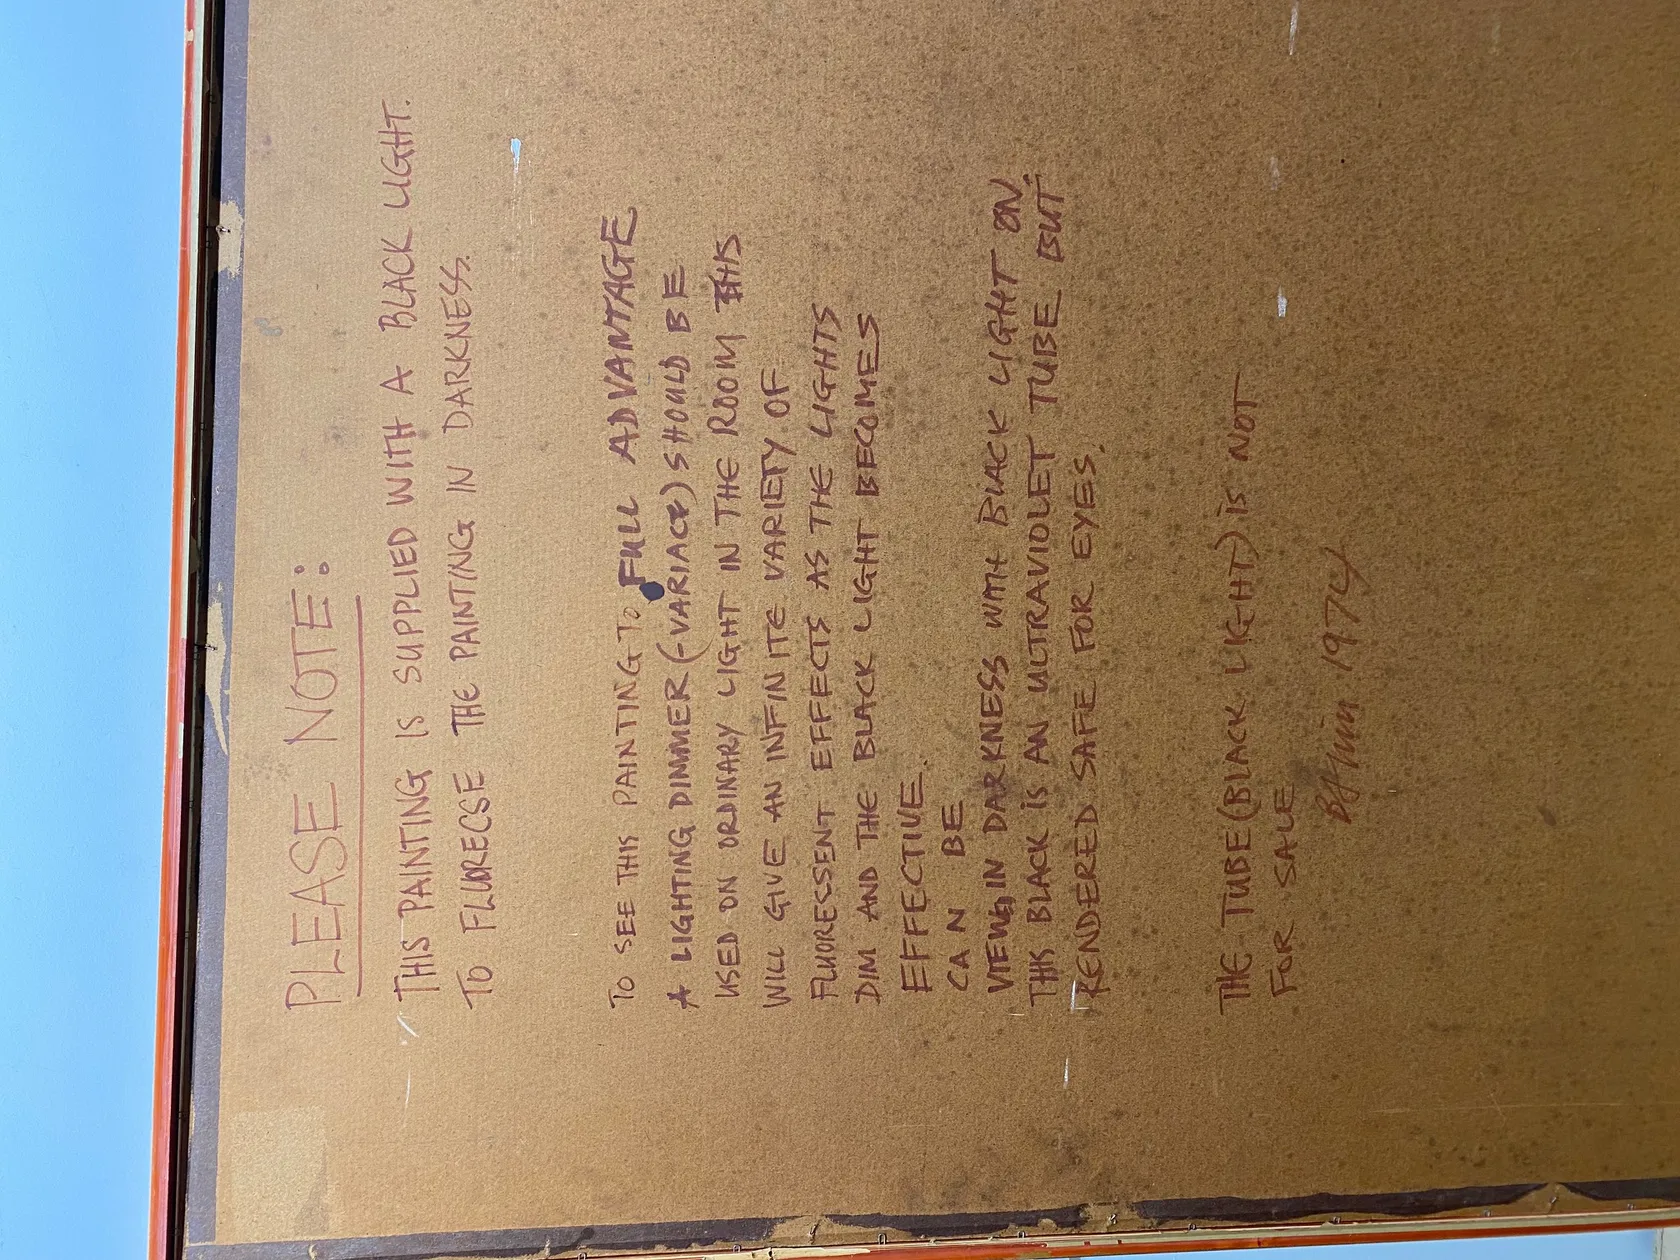 PLEASE NOTE:
THIS PAINTING IS SUPPLIED WITH A BLACK LIGHT.
TO FLURECSE THE PAINTING IN DARKNESS.
TO SEE THIS PAINTING TO FULL ADVANTAGE
A LIGHTING DIMMER (-VARIACE) SHOULD BE
USED ON ORDINARY LIGHT IN THE ROOM THIS
WILL GIVE AN INFINITE VARIETY OF
FLUORECSENT EFFECTS AS THE LIGHTS
DIM AND THE BLACK LIGHT BECOMES
EFFECTIVE.
CAN BE
VIEWED IN DARKNESS WITH BLACK LIGHT ON.
THIS BLACK IS AN ULTRAVIOLET TUBE BUT
RENDERED SAFE FOR EYES.
THE TUBE (BLACK LIGHT) IS NOT
FOR SALE
1974